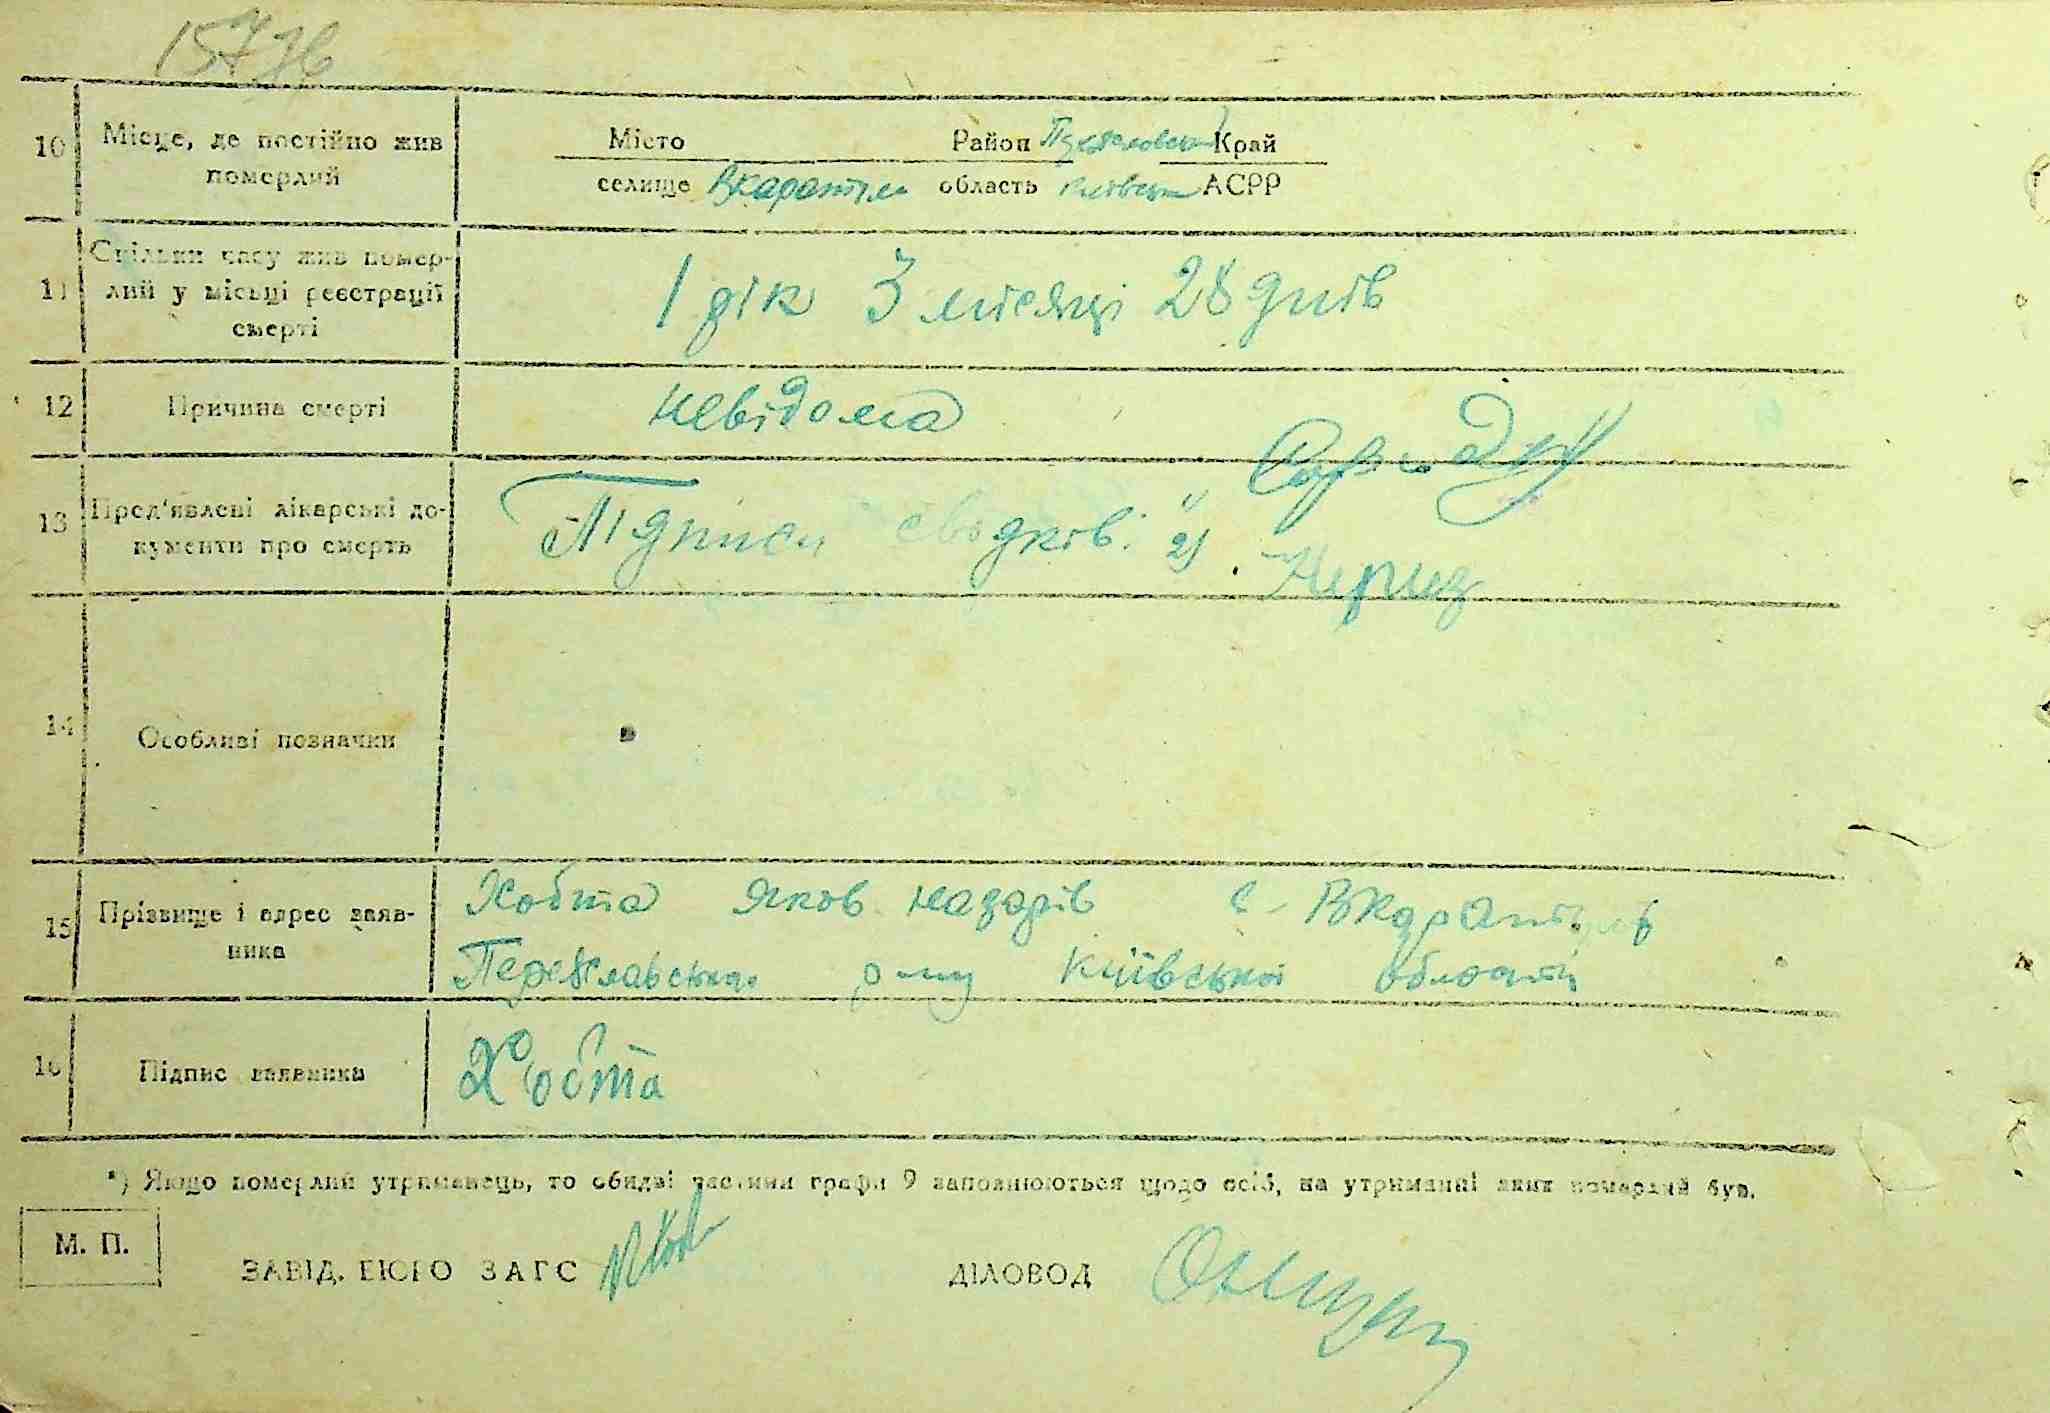 10 Місце, де постійно жив Місто Район Край
померлий селище Вкаратул область Київськ АСРР
Скільки часу жив помер-
11 лий у місьці реєстрації 1 рік 3 місяці 28 днів
смерті
12 Причина смерті невідома
13 Пред'явлені лікарські до- Підписи свідків:
кументи про смерть 2)
14 Особливі позначки
15 Прізвище і адрес заяв- Хобта Яков Назарів с.
ника Переяславського р-ну Київської області
16 Підпис заявника Хобта
*) Якщо померлий утриманець, то обидві частини графи 9 заповнюються щодо осіб, на утриманні яких померлий був.
М. П.
ЗАВІД. БЮРО ЗАГС ДІЛОВОД